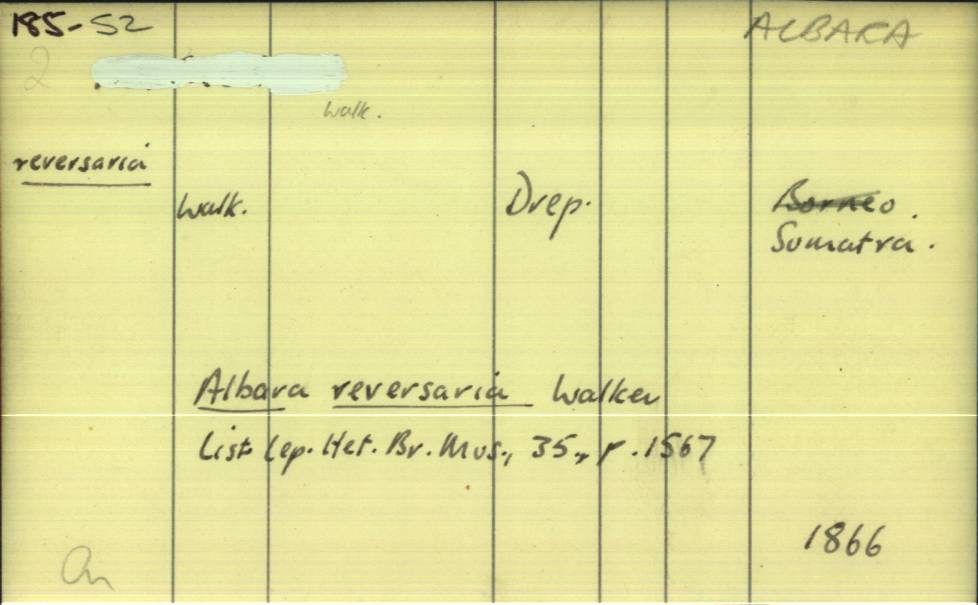 185-S2
ALBARA
2
Walk.
reversaria
Walk.
Drep.
Borneo.
Sumatra.
Albara reversaria Walker
List Lep. Het. Br. Mus., 35, p. 1567
1866